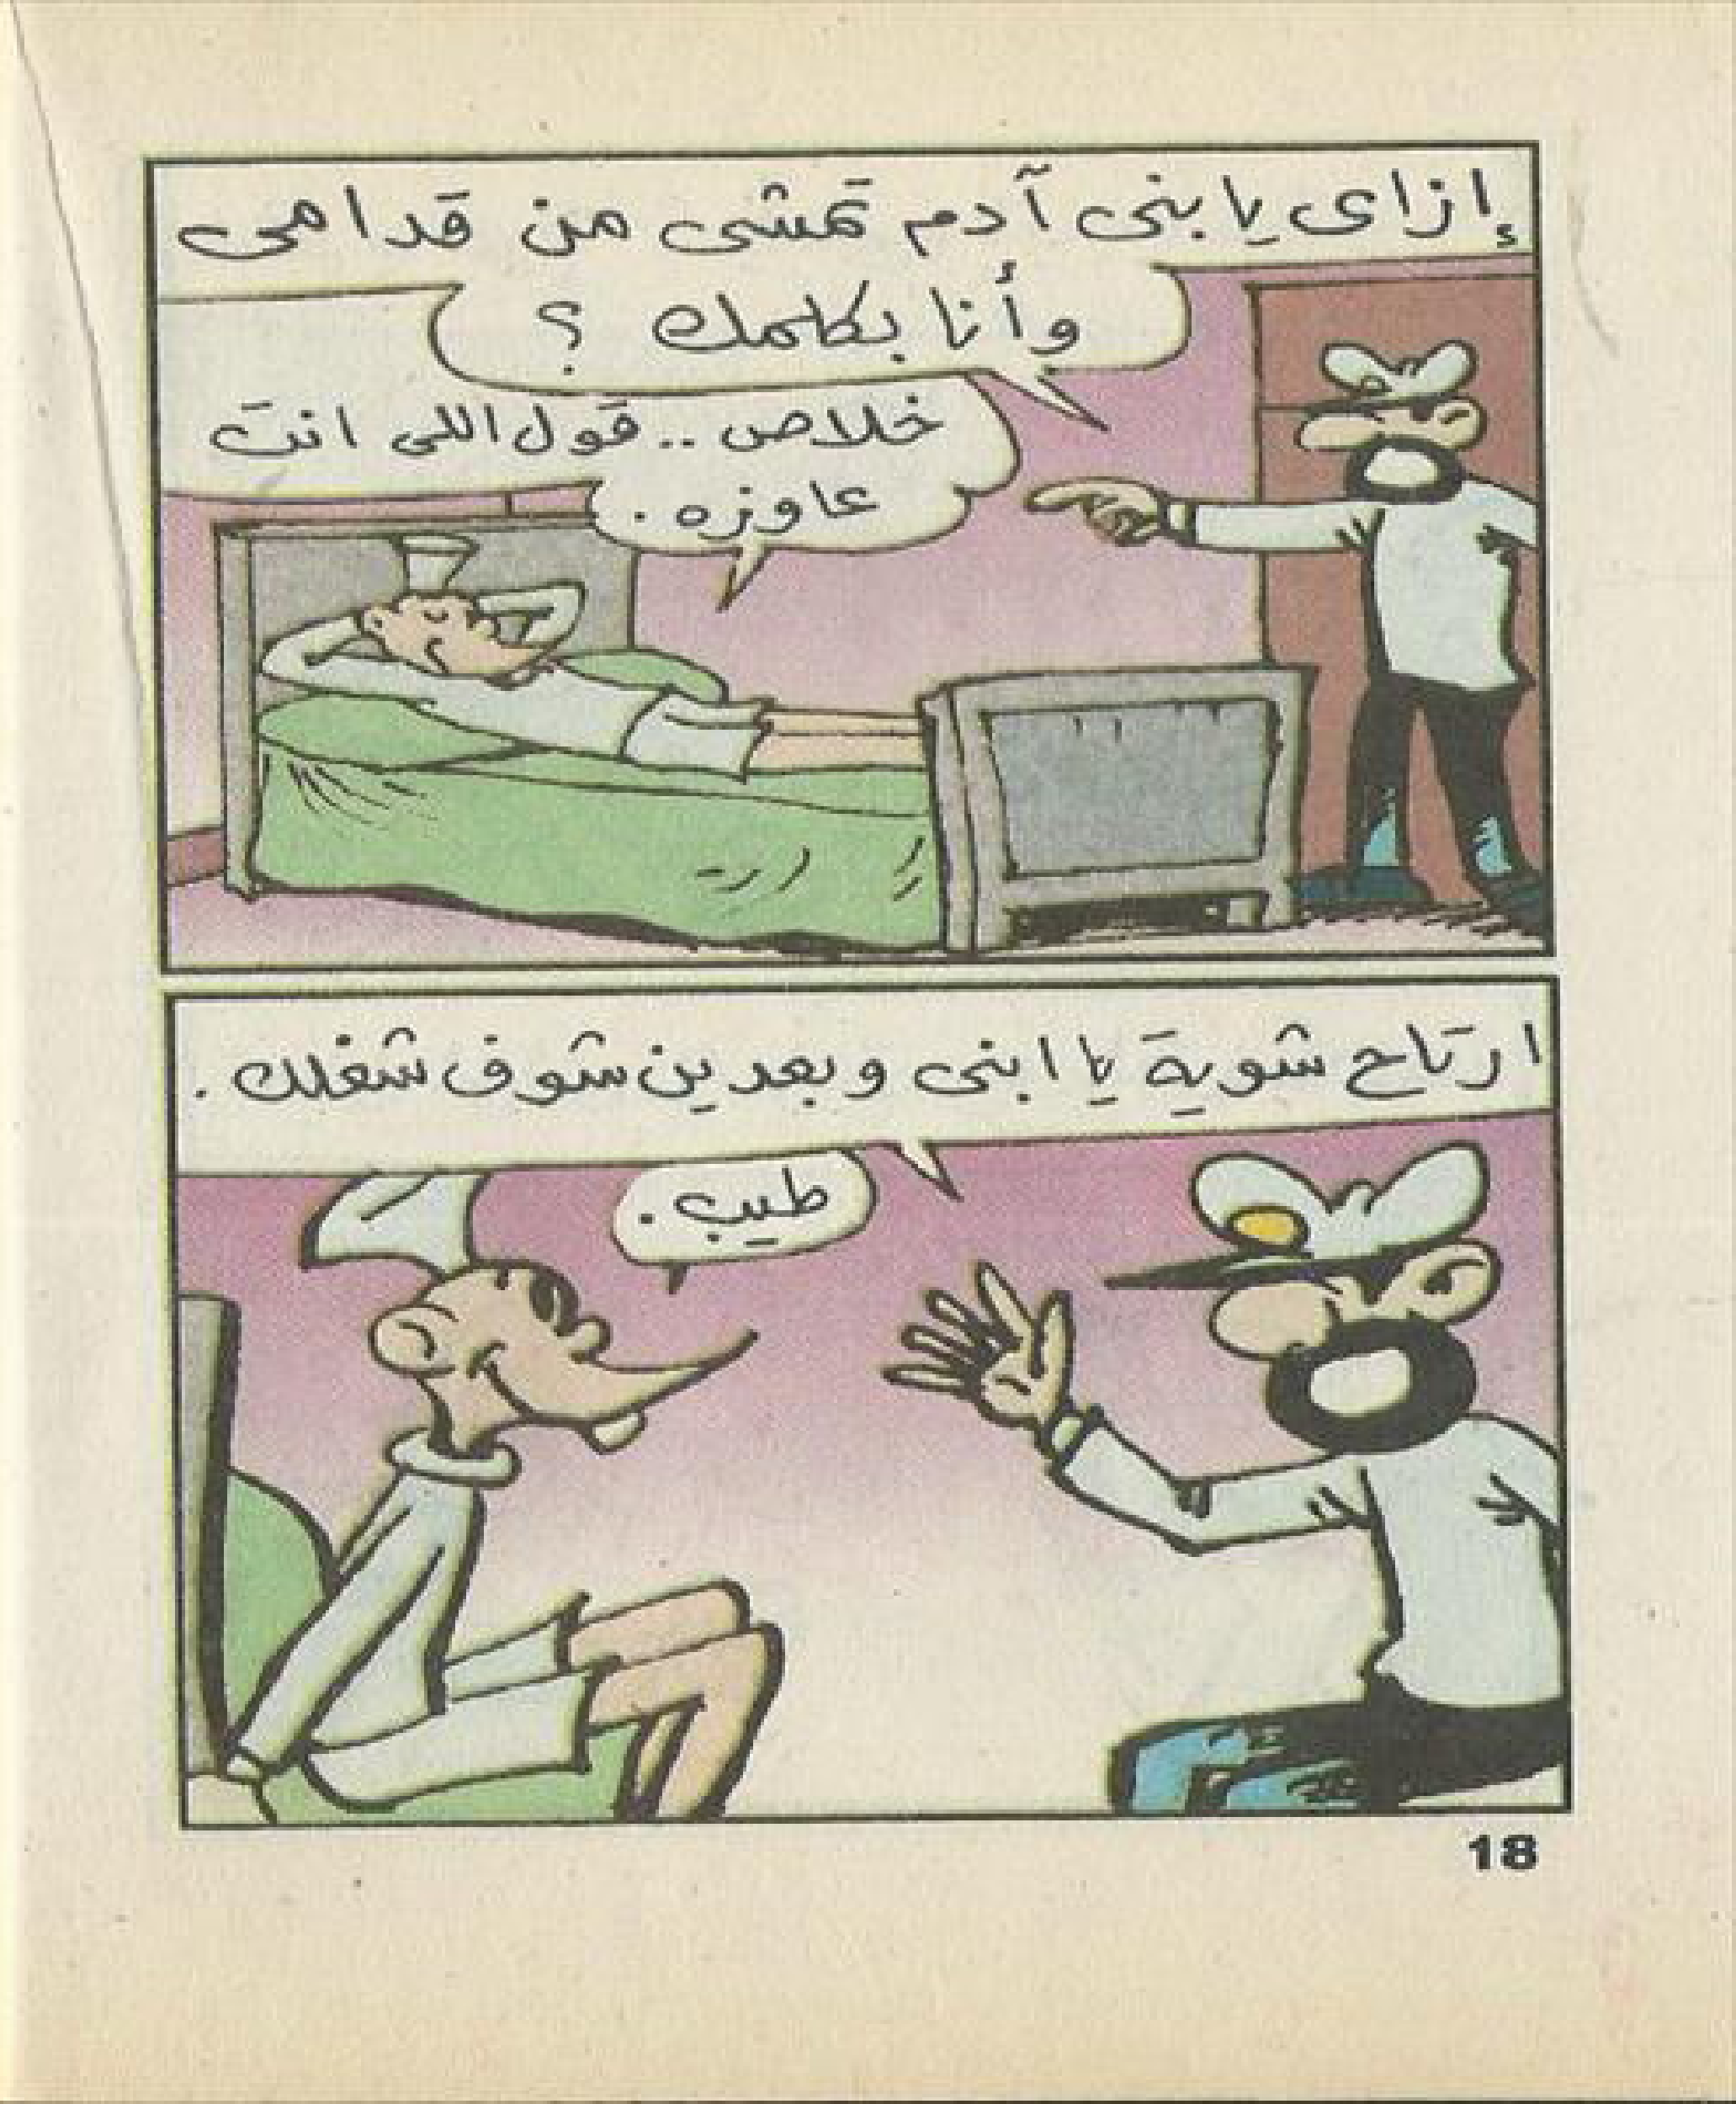 إزاى يا بنى آدم تمشى من قدامى
وأنا بكلمك ؟
خلاص .. قول اللى انت
عاوزه .
ارتاح شوية يا ابنى وبعدين شوف شغلك .
طيب .
18